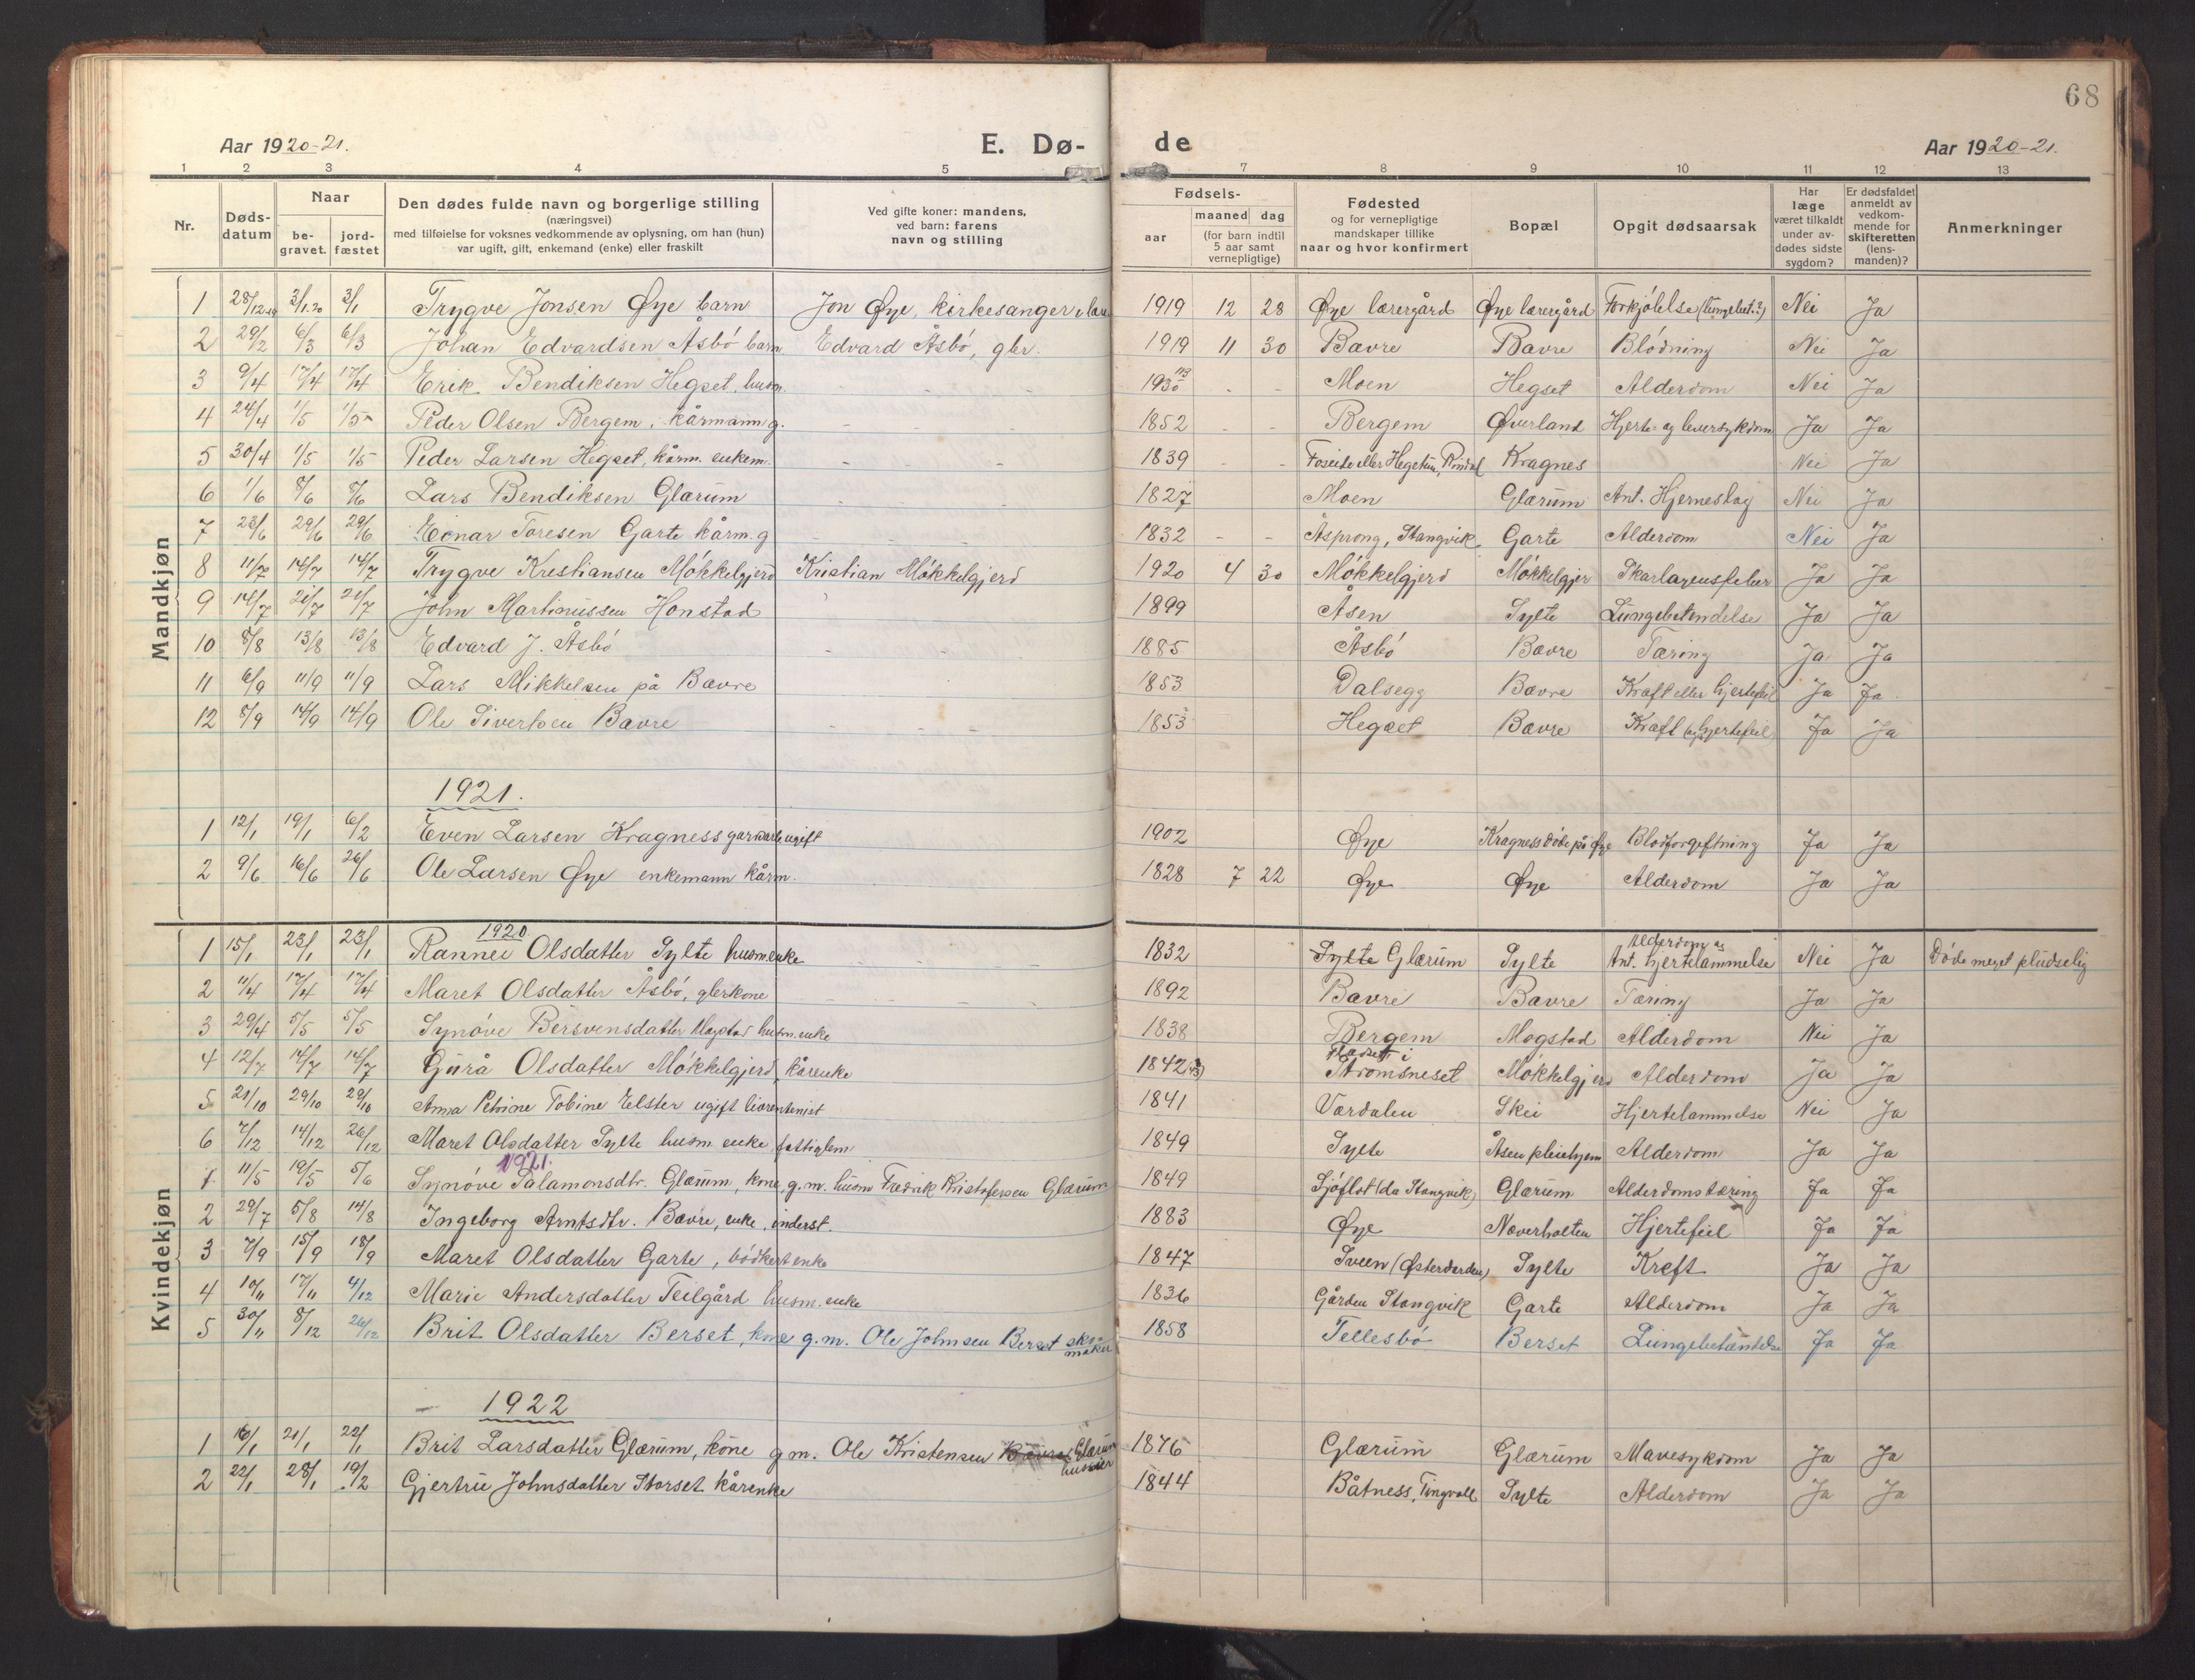 68
Aar 1920-21. E. Dø- de Aar 1920-21.
1 2 3 4 5 6 7 8 9 10 11 12 13
Nr. Døds-datum Naar be-gravet. jord-fæstet Den dødes fulde navn og borgerlige stilling (næringsvei) med tilføielse for voksnes vedkommende av oplysning, om han (hun) var ugift, gift, enkemand (enke) eller fraskilt Ved gifte koner: mandens, ved barn: farens navn og stilling Fødsels- aar maaned dag (for barn indtil 5 aar samt vernepligtige) Fødested og for vernepligtige mandskaper tillike naar og hvor konfirmert Bopæl Opgit dødsaarsak Har læge været tilkaldt under av-dødes sidste sygdom? Er dødsfaldet anmeldt av vedkom-mende for skifteretten (lens-manden)? Anmerkninger
Mandkjøn
1 28/12-19 3/1-20 3/1 Trygve Jonsen Øye barn Jon Øye, kirkesanger 1919 12 28 Øye lærergård Øye lærergård Forkjølelse (lungebet.?) Nei Ja
2 29/2 6/3 6/3 Johan Edvardsen Åsbó barn Edvard Åsbó, gbr. 1919 11 30 Bævre Bævre Blódning Nei Ja
3 9/4 17/4 17/4 Erik Bendiksen Hegset, husm. - - - - - Moen Hegset Alderdom Nei Ja
4 24/4 1/5 1/5 Peder Olsen Bergem, kårmann g. - - - 1852 - - Bergem Øverland Hjerte- og leversykdom Ja Ja
5 30/4 1/5 1/5 Peder Larsen Hegset, kårm. enkem. - - - 1839 - - eller Hegetun, Rindal Kragnes Nei Ja
6 1/6 8/6 8/6 Lars Bendiksen Glærum - - - 1827 Moen Glærum Ant. Hjerneslag Nei Ja
7 23/6 29/6 29/6 Einar Toresen Garte kårm. g - - - 1832 - - Åsprong, Stangvik Garte Alderdom Nei Ja
8 11/7 14/7 14/7 Trygve Kristiansen Mókkelgjerd Kristian Mókkelgjerd 1920 4 30 Mókkelgjerd Mókkelgjer Skarlagensfeber Ja Ja
9 14/7 21/7 21/7 John Martinussen Honstad 1899 Åsen Sylte Lungebetendelse Ja Ja
10 8/8 13/8 13/8 Edvard J. Åsbó - - - 1885 Åsbó Bævre Tæring Ja Ja
11 6/9 11/9 11/9 Lars Mikkelsen på Bævre 1853 Dalsegg Bævre Kræft eller hjertefeil Ja Ja
12 8/9 14/9 14/9 Ole Sivertsen Bævre - - - 1853 Hegset Bævre Kræft (og hjertefeil) Ja Ja
1921.
1 12/1 19/1 6/2 Even Larsen Kragness ugift 1902 Øye Kragness døde på Øye Blodforgiftning Ja Ja
2 9/6 16/6 26/6 Ole Larsen Øye enkemann kårm. 1828 7 22 Øye Øye Alderdom Ja Ja
Kvindekjøn
1920
1 15/1 23/1 23/1 Rannei Olsdatter Sylte husm.enke 1832 Sylte Glærum Sylte Alderdom og Ant. hjertelammelse Nei Ja Døde meget pludselig
2 11/4 17/4 17/4 Maret Olsdatter Åsbó, gbrkone - - - 1892 Bævre Bævre Tæring Ja Ja
3 29/4 5/5 5/5 Synóve Bersvensdatter Mogstad husm.enke 1838 Bergem Mogstad Alderdom Nei Ja
4 12/7 14/7 14/7 Gurå Olsdatter Mókkelgjerd, kårenke 1842 Flædset i Strømsneset Mókkelgjerd Alderdom Ja Ja
5 21/10 29/10 29/10 Anna Petrine Tobine Elster ugift livrentenist 1841 Værdalen Skei Hjertelammelse Nei Ja
6 7/12 14/12 26/12 Maret Olsdatter Sylte husm. enke fattiglem 1849 Sylte Åsen pleiehjem Alderdom Ja Ja
1921.
1 11/5 19/5 5/6 Synóve Salamonsdtr. Glærum, kone, g.m. husm Fredrik Kristofersen Glærum 1849 Sjóflot (da Stangvik) Glærum Alderdomstæring Ja Ja
2 29/7 5/8 14/8 Ingeborg Arntsdtr. Bævre, enke, inderst. 1883 Øye Næverholten Hjertefeil Ja Ja
3 7/9 15/9 18/9 Maret Olsdatter Garte, bódkerenke 1847 Sveen (Østerdalen) Sylte Kreft Ja Ja
4 10/11 17/11 4/12 Marie Andersdatter Teilgård husm. enke 1836 Gården Stangvik Garte Alderdom Ja Ja
5 30/11 8/12 26/12 Brit Olsdatter Berset, kone g.m. Ole Johnsen Berset skomaker 1858 Tellesbó Berset Lungebetændelse Ja Ja
1922
1 16/1 21/1 22/1 Brit Larsdatter Glærum, kone g.m. Ole Kristensen Bævre Glærum huseier 1876 Glærum Glærum Mavesykdom Ja Ja
2 22/1 28/1 19/2 Gjertru Johnsdatter Storset kårenke 1844 Båtness, Tingvoll Sylte Alderdom Ja Ja